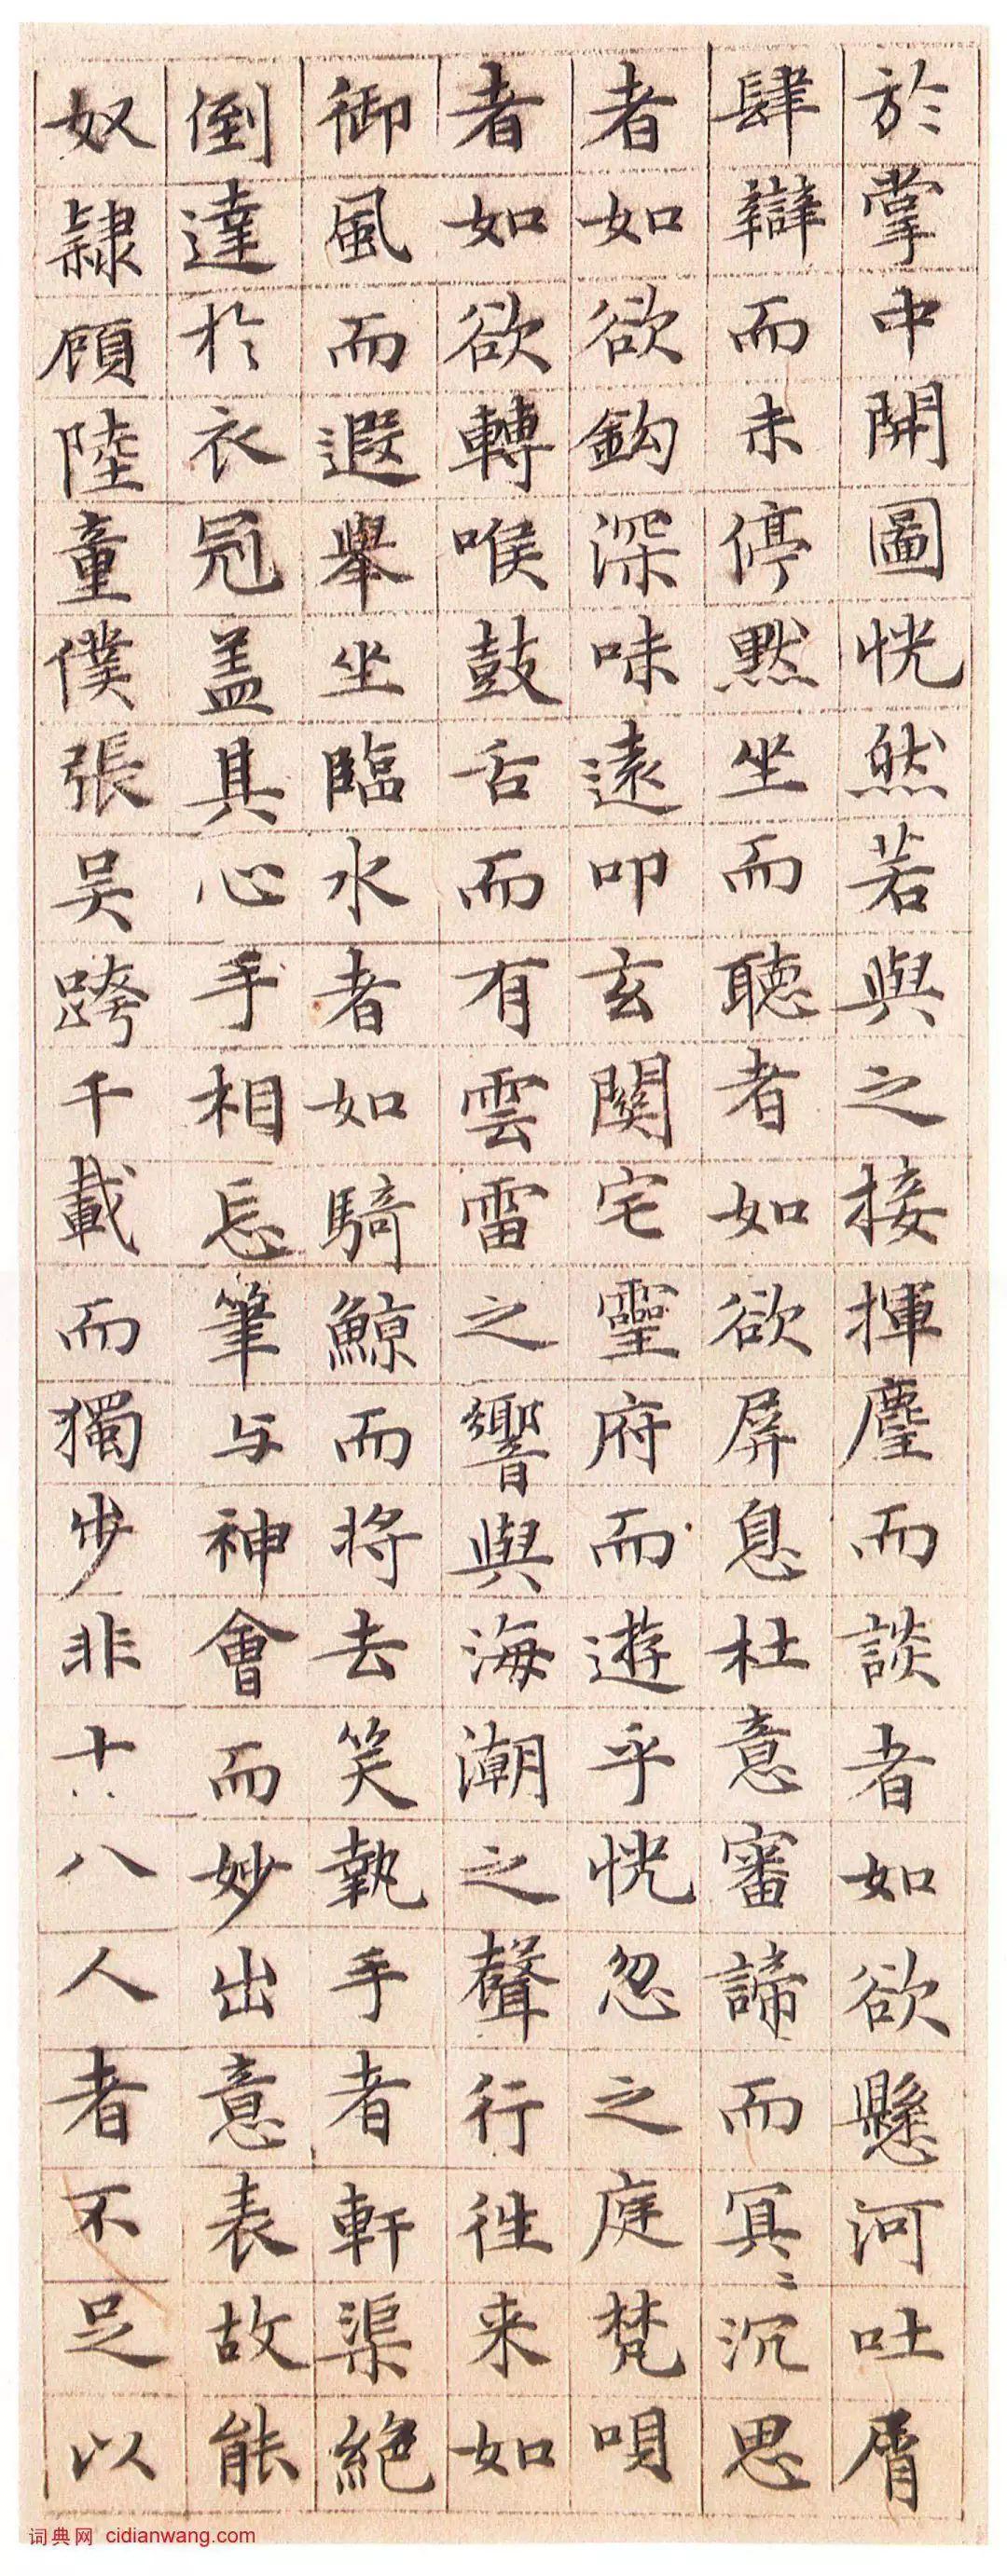 於掌中開圖恍然若與之接揮麈而談者如欲懸河吐屑
肆辯而未停默坐而聽者如欲屏息杜意審諦而冥〻沉思
者如欲鈎深味遠叩玄關宅靈府而遊乎恍忽之庭梵唄
者如欲轉喉鼓舌而有雲雷之響與海潮之聲行徃来如
御風而遐舉坐臨水者如騎鯨而将去笑執手者軒渠絕
倒達於衣冠盖其心手相忘筆与神會而妙出意表故能
奴隷顧陸童僕張吴跨千載而獨步非十八人者不足以
词典网 cidianwang.com